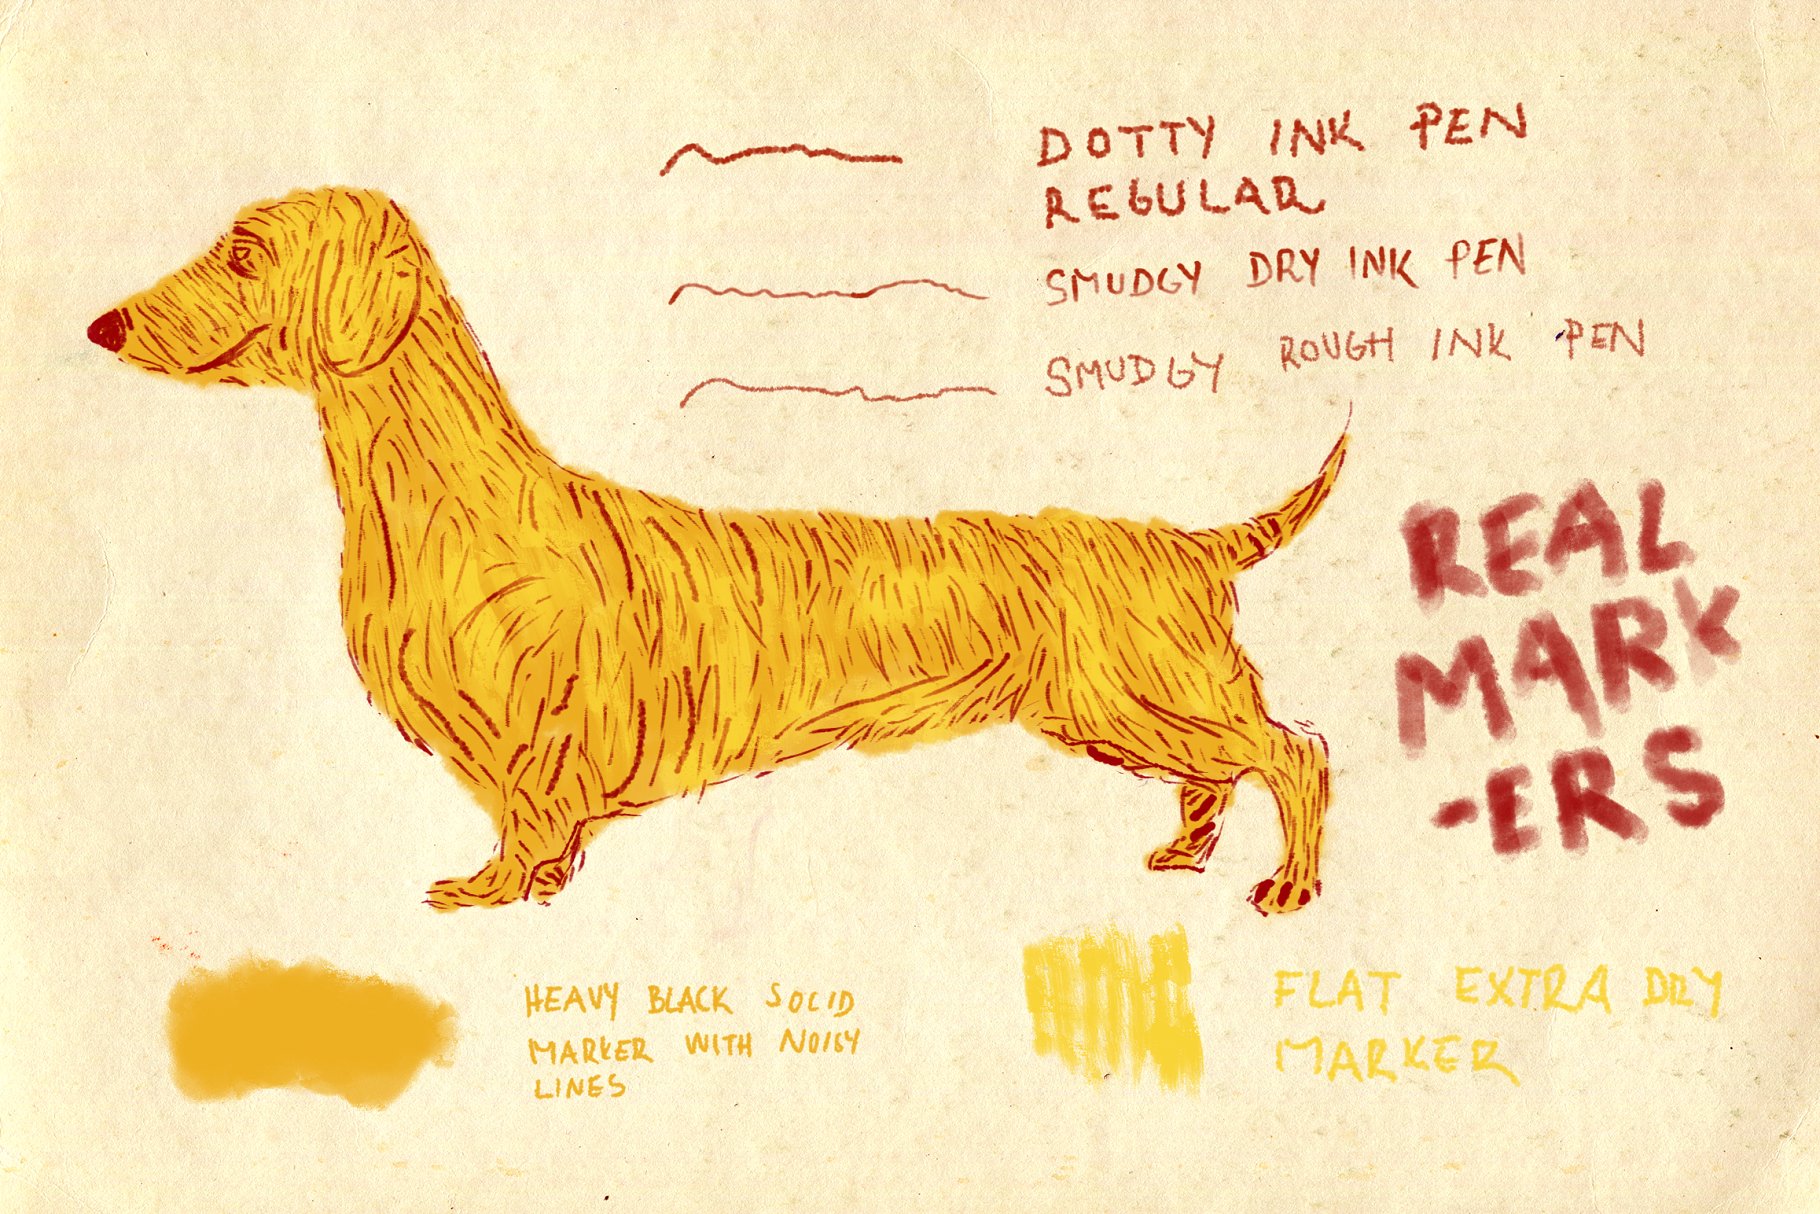 DOTTY INK PEN
REGULAR
SMUDGY DRY INK PEN
SMUDGY ROUGH INK PEN
REAL
MARK
-ERS
HEAVY BLACK SOLID
MARKER WITH NOISY
LINES
FLAT EXTRA DRY
MARKER